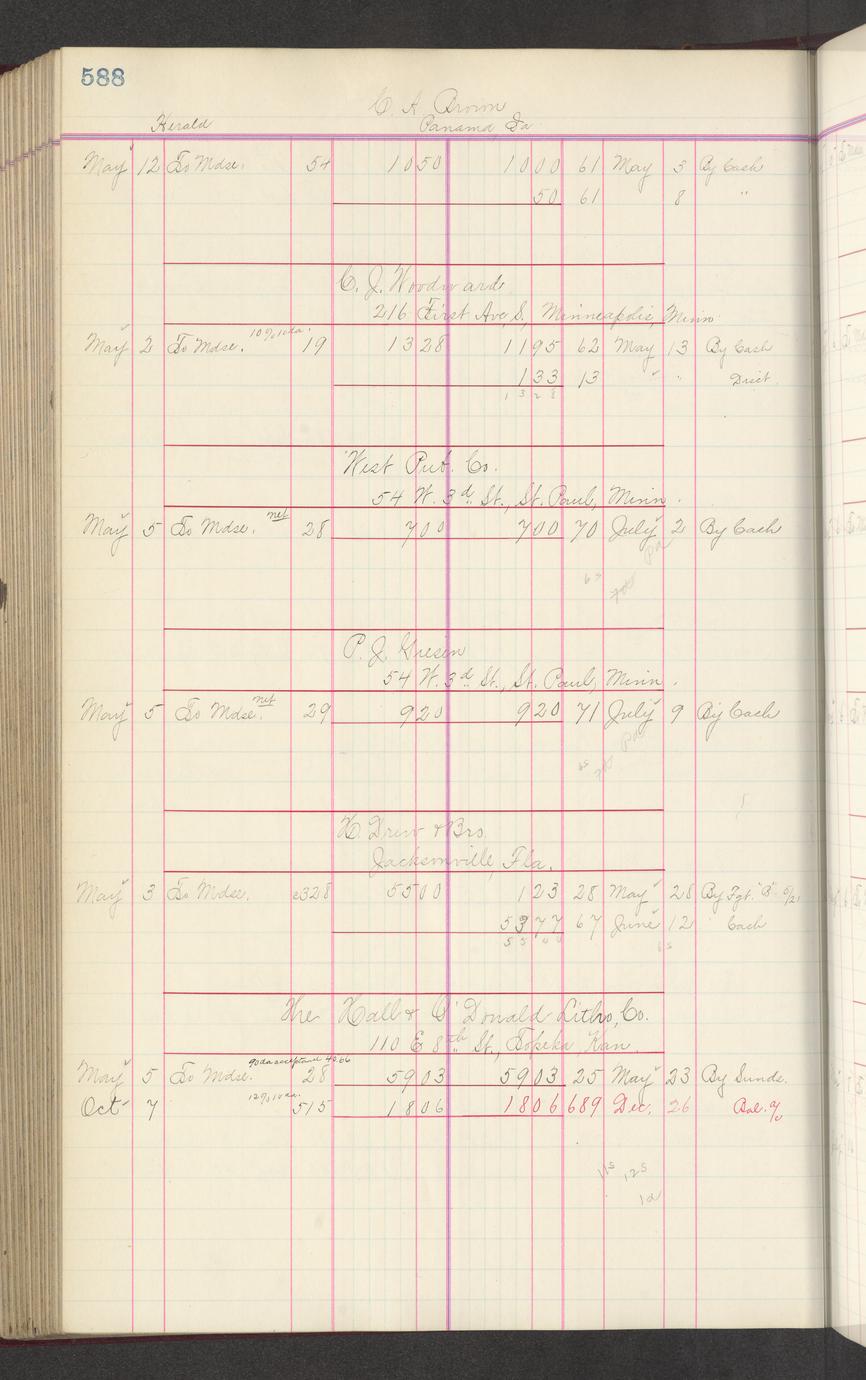 588
C. A. Brown
Herald Panama, Ia
May 12 To Mdse. 54 10 50 10 00 61 May 5 By Cash
50 61 8 "
C. J. Woodward
216 First Ave, S., Minneapolis, Minn.
May 2 To Mdse. 10% 10 da. 19 13 28 11 95 62 May 13 By Cash
1 33 13 " " Disct.
1 3 2 8
West Pub. Co.
54 W. 3d. St., St. Paul, Minn.
May 5 To Mdse. net 28 7 00 7 00 70 July 2 By Cash
Pd
P. J. Giesen
54 W. 3d. St., St. Paul, Minn.
May 5 To Mdse. net 29 9 20 9 20 71 July 9 By Cash
Pd
H. Drew & Bro.
Jacksonville, Fla.
May 3 To Mdse. 328 55 00 1 23 28 May 28 By Fgt. "B"
53 77 67 June 12 Cash
5 5 0 0
The Hall & O'Donald Litho. Co.
110 E 8th St., Topeka, Kan.
90 da acceptance 40.66
May 5 To Mdse. 28 59 03 59 03 25 May 23 By Sunds.
Oct 7 12% 10 da. 515 18 06 18 06 689 Dec. 26 Bal. a/c
11s 12s
1a